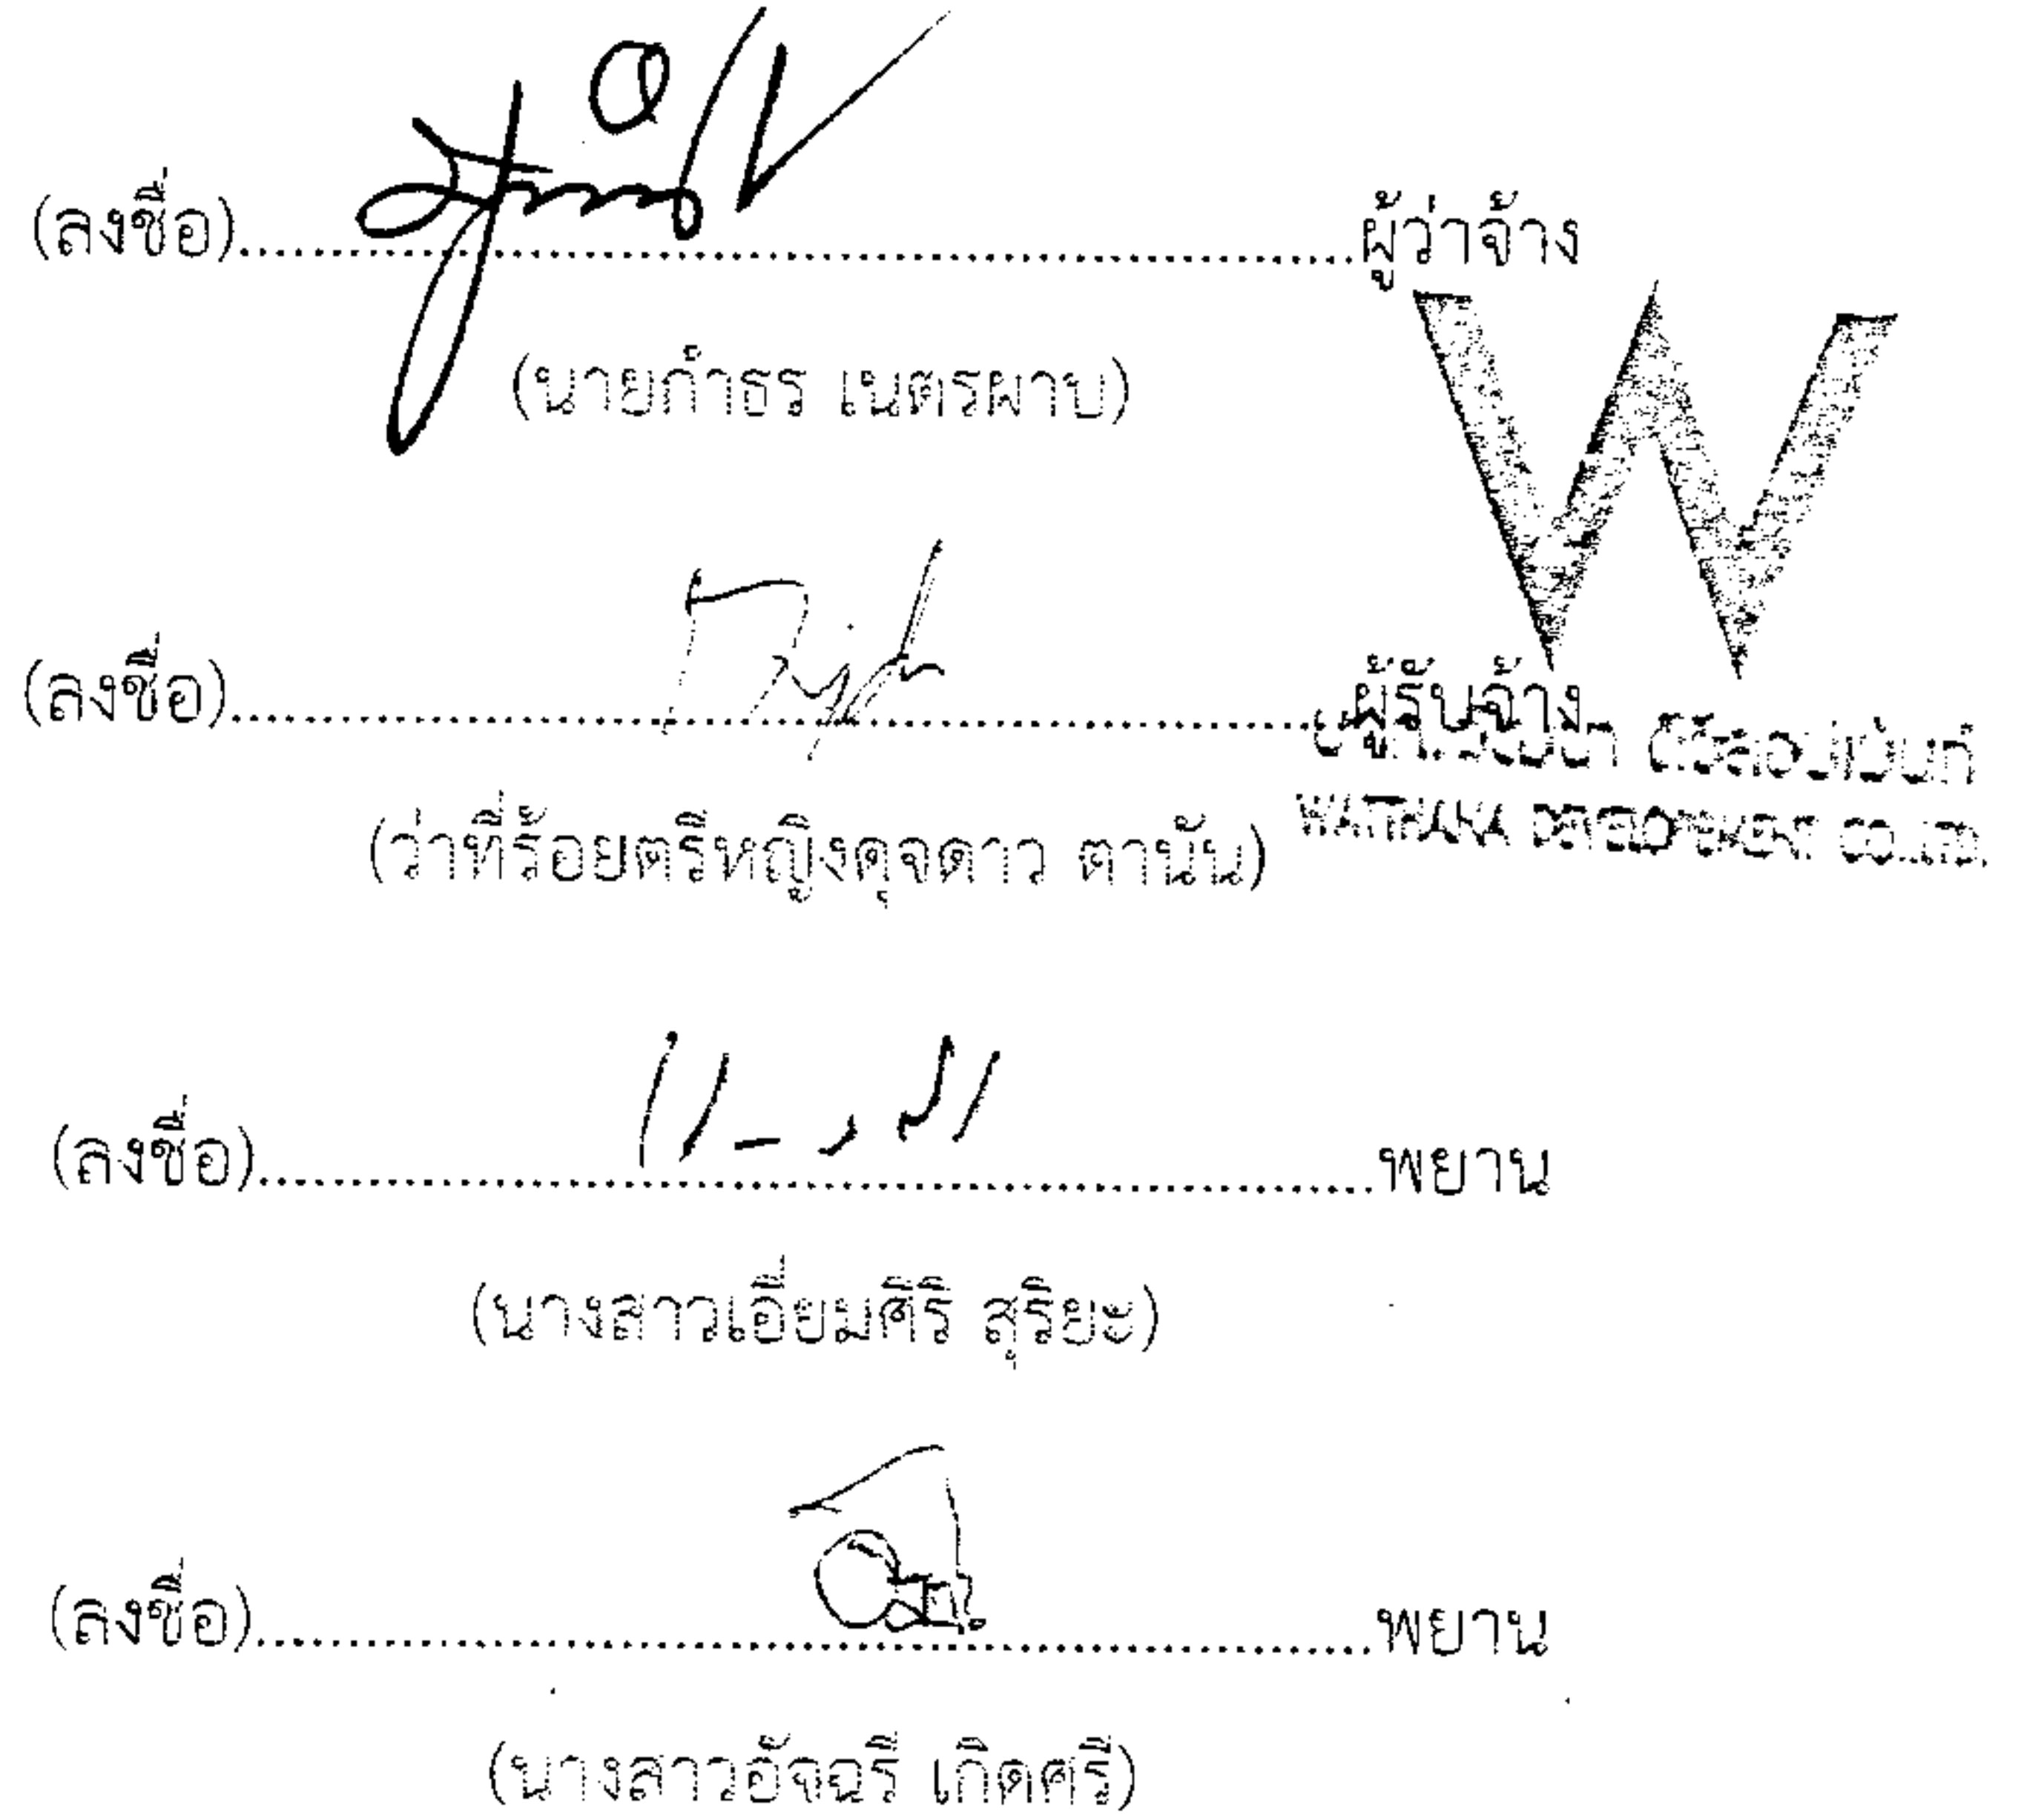 (ลงชื่อ)............................................................ผู้ว่าจ้าง
(นายกำธร เนตรผาบ)
(ลงชื่อ)............................................................ผู้รับจ้าง
ดีเวลลอปเม้นท์
WATTHANA DEVELOPMENT CO.,LTD.
(ว่าที่ร้อยตรีหญิงดุจดาว ตานัน)
(ลงชื่อ)............................................................พยาน
(นางสาวเอี่ยมศิริ สุริยะ)
(ลงชื่อ)............................................................พยาน
(นางสาวอัจฉรี เกิดศรี)